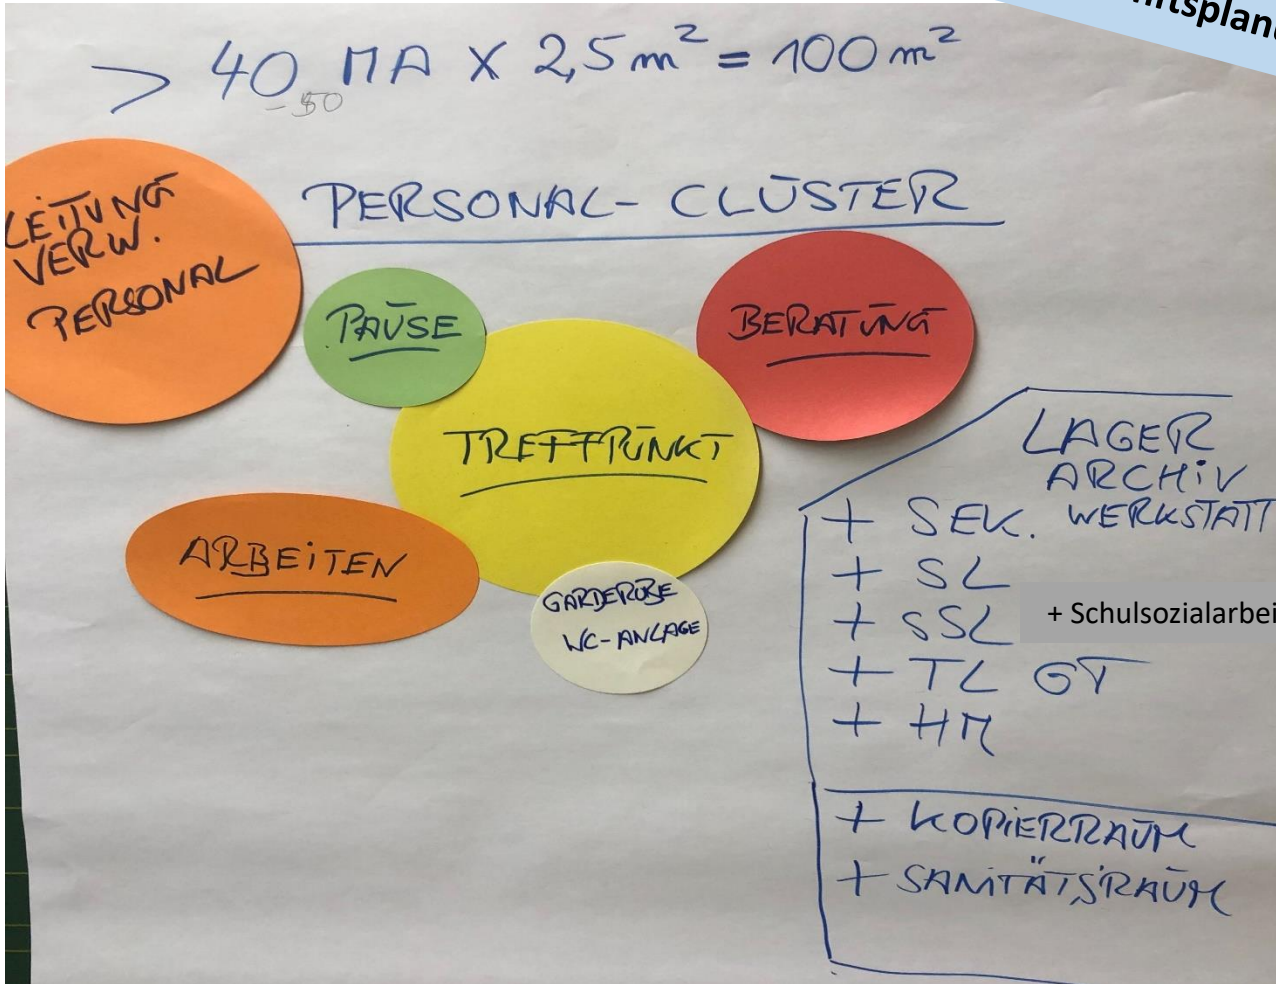 > 40 MA X 2,5 m² = 100 m²
- 50
LEITUNG
VERW.
PERSONAL
PERSONAL-CLUSTER
PAUSE
BERATUNG
TREFFPUNKT
ARBEITEN
GARDEROBE
WC-ANLAGE
LAGER
ARCHIV
WERKSTATT
+ SEK.
+ SL
+ SSL
+ Schulsozialarbei
+ TL GT
+ HM
+ KOPIERRAUM
+ SANITÄTSRAUM